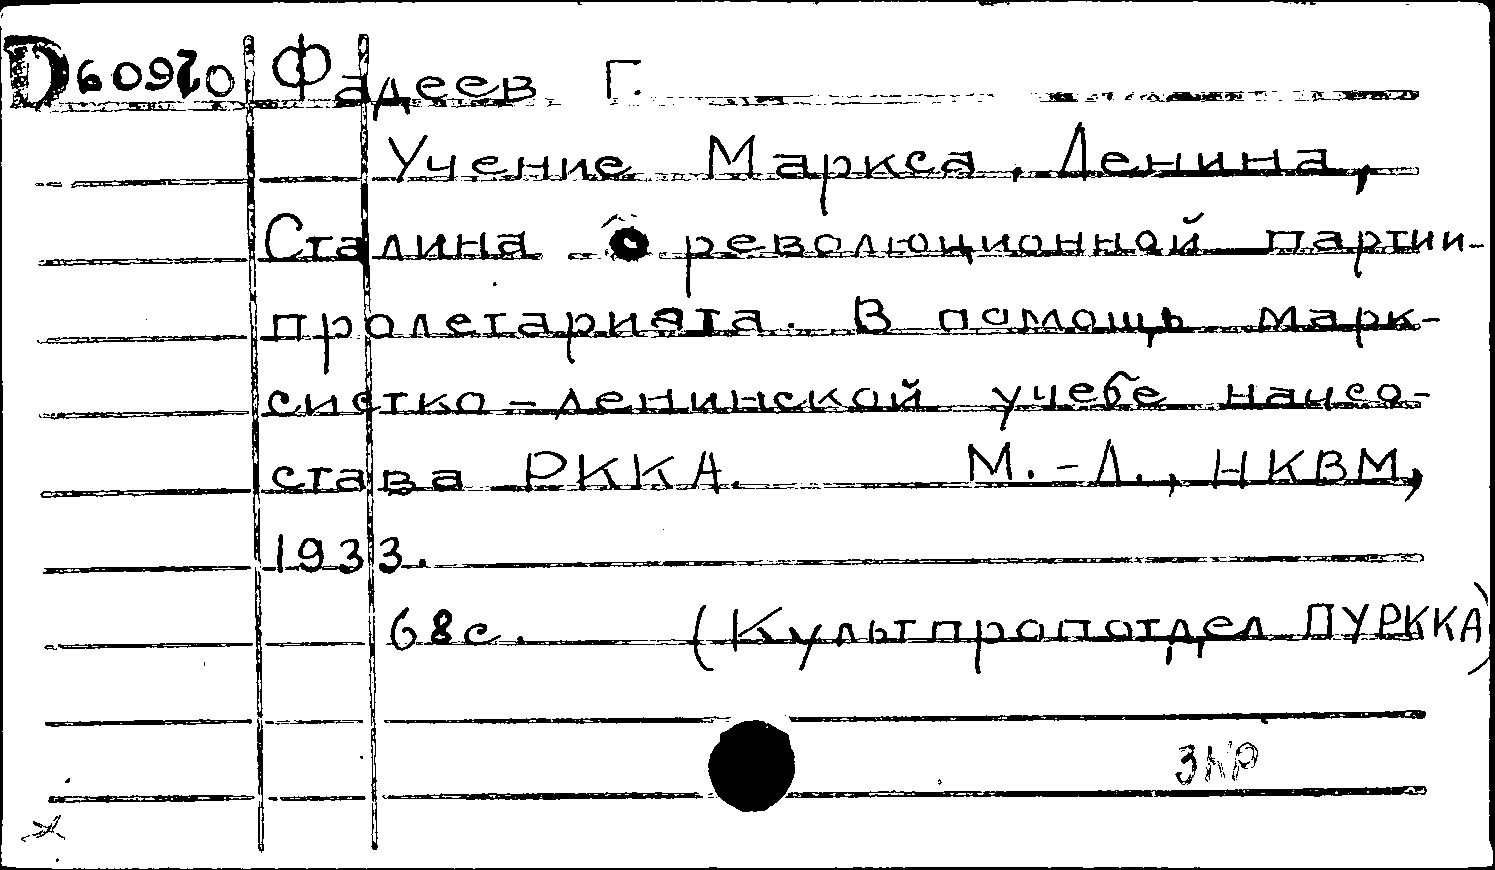 Фадеев Г.
Учение Маркса, Ленина,
Сталина о революционной партии
пролетарията. В помощь марк-
систко-ленинской учебе начсо-
става РККА. М.-Л., НКВМ,
1933.
68с. (Культпропотдел ПУРККА)